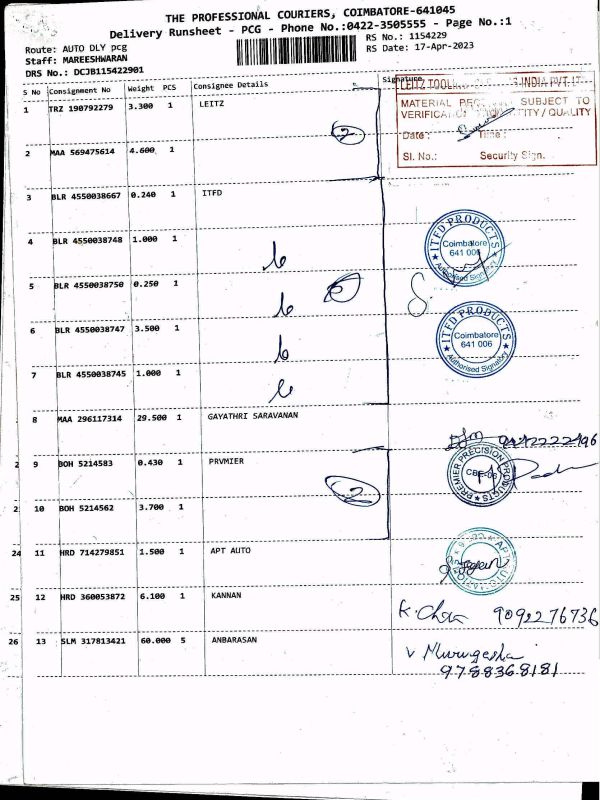 THE PROFESSIONAL COURIERS, COIMBATORE-641045
Delivery Runsheet - PCG - Phone No.:0422-3505555 - Page No.:1
Route: AUTO DLY pcg
RS No.: 1154229
Staff: MAREESHWARAN
RS Date: 17-Apr-2023
DRS No.: DCJB115422901
S No Consignment No Weight PCS Consignee Details Signature
1 TRZ 190792279 3.300 1 LEITZ
2
MATERIAL SUBJECT TO
Date: Time:
Sl. No.: Security Sign.
2 MAA 569475614 4.600 1
3 BLR 4550038667 0.240 1 ITFD
4 BLR 4550038748 1.000 1
ITFD PRODUCTS
Coimbatore
641 006
Authorised Signatory
5 BLR 4550038750 0.250 1
5
6 BLR 4550038747 3.500 1
ITFD PRODUCTS
Coimbatore
641 006
Authorised Signatory
7 BLR 4550038745 1.000 1
8 MAA 296117314 29.500 1 GAYATHRI SARAVANAN
2 9 BOH 5214583 0.430 1 PRVMIER
PREMIER PRECISION PRODUCTS
2
2 10 BOH 5214562 3.700 1
24 11 HRD 714279851 1.500 1 APT AUTO
25 12 HRD 360053872 6.100 1 KANNAN
9092276736
26 13 SLM 317813421 60.000 5 ANBARASAN
V Murugesha
9788368181